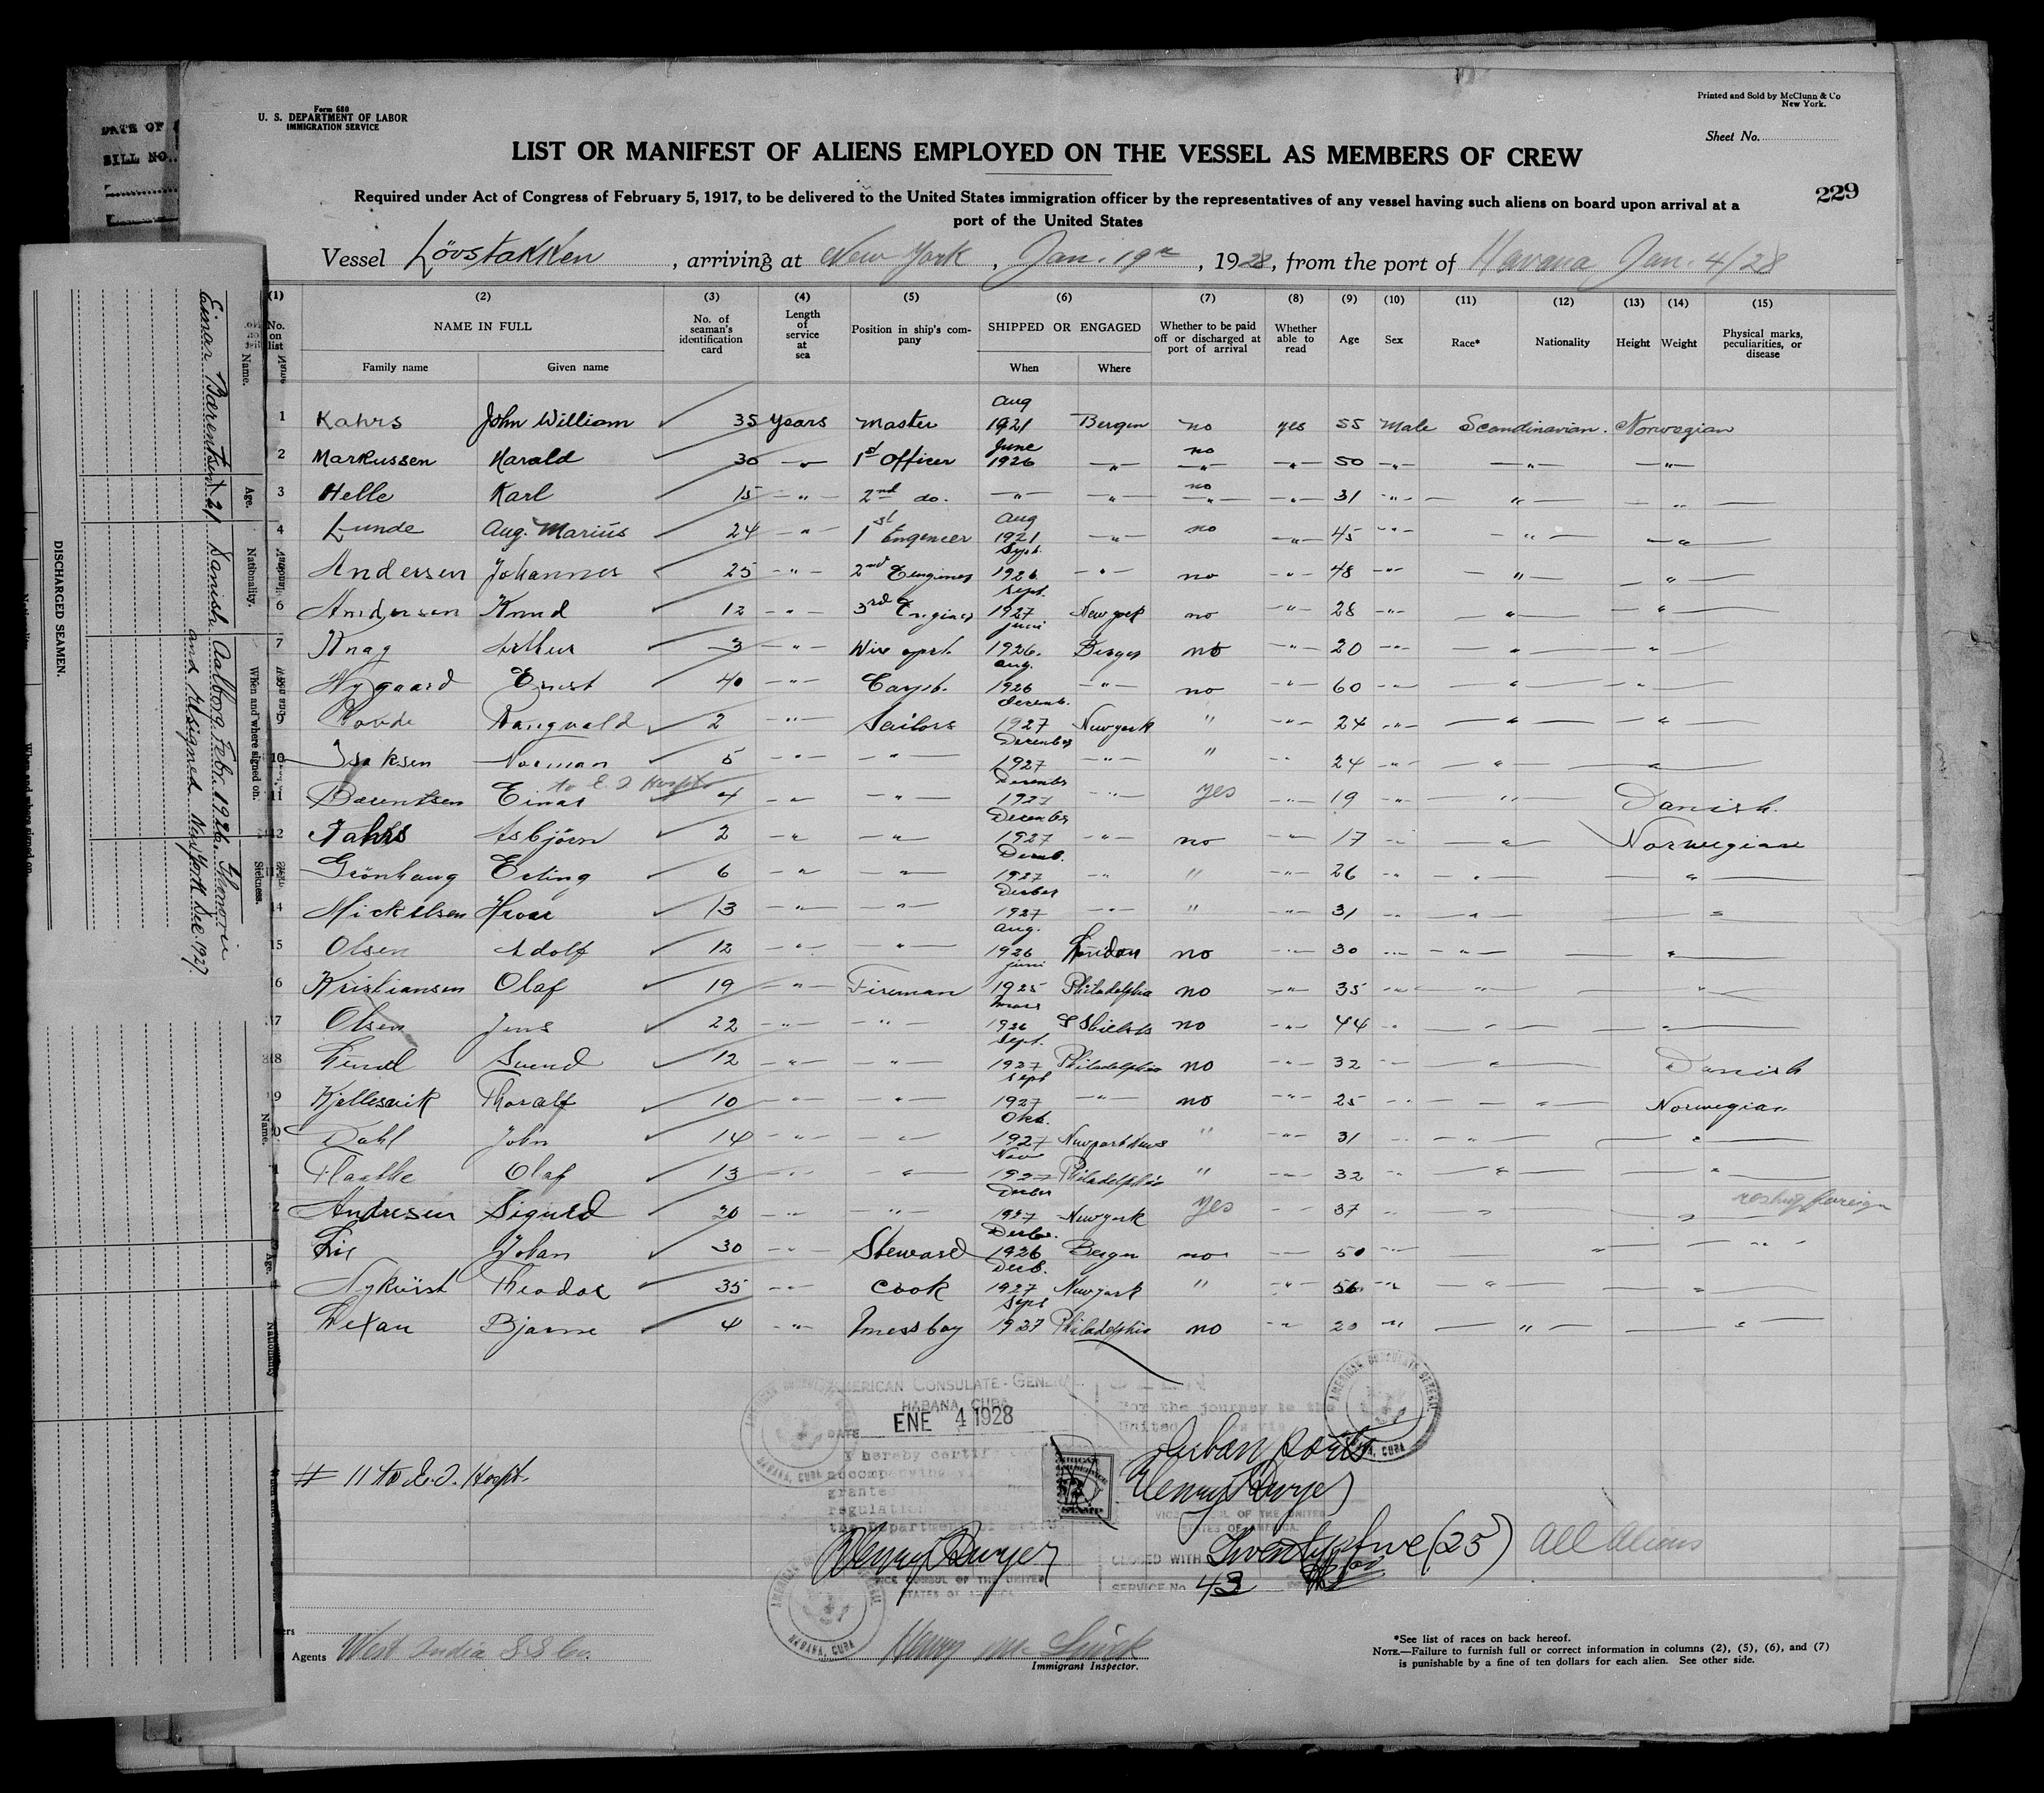 Form 680
U. S. DEPARTMENT OF LABOR
IMMIGRATION SERVICE
Printed and Sold by McClunn & Co
New York.
Sheet No.
LIST OR MANIFEST OF ALIENS EMPLOYED ON THE VESSEL AS MEMBERS OF CREW
Required under Act of Congress of February 5, 1917, to be delivered to the United States immigration officer by the representatives of any vessel having such aliens on board upon arrival at a
port of the United States
229
Vessel Lövstakken, arriving at New York, Jan. 19th, 1928, from the port of Havana Jan. 4/28
(1) (2) (3) (4) (5) (6) (7) (8) (9) (10) (11) (12) (13) (14) (15)
No. on list NAME IN FULL No. of seaman's identification card Length of service at sea Position in ship's company SHIPPED OR ENGAGED Whether to be paid off or discharged at port of arrival Whether able to read Age Sex Race* Nationality Height Weight Physical marks, peculiarities, or disease
Family name Given name When Where
1 Kahrs John William 35 years Master Aug 1921 Bergen no yes 55 Male Scandinavian. Norwegian
2 Markussen Harald 30 —"— 1st Officer June 1926 —"— no —"— —"— 50 —"— —"— —"—
3 Helle Karl 15 —"— 2nd do. —"— —"— no —"— —"— 31 —"— —"— —"—
4 Lunde Aug. Marius 24 —"— 1st Engeneer Aug 1921 —"— no —"— 45 —"— —"— —"—
Andersen Johannes 25 —"— 2nd Sept. 1926 —"— no —"— 48 —"— —"— —"—
6 Andersen Knud 12 —"— 3rd Sept. 1927 New york no —"— 28 —"— —"— —"—
7 Knag Arthur 3 —"— Wire oprt. juni 1926. Bergen no —"— 20 —"— —"— —"—
Nygaard Ernst 40 —"— Carpt. aug. 1926 —"— no —"— 60 —"— —"— —"—
9 Rangvald 2 —"— Sailors Decemb. 1927 Newyork " —"— 24 —"— —"— —"—
10 Isaksen Norman 5 —"— —"— December 1927 —"— " —"— 24 —"— —"— —"—
to E. I Hospt
11 Barentsen Einar 4 —"— —"— December 1927 —"— yes —"— 19 —"— —"— Danish.
12 Asbjörn 2 —"— —"— December 1927 —"— no —"— 17 —"— —"— Norwegian
Grönhaug Erling 6 —"— —"— 1927 —"— " —"— 26 —"— —"— —"—
14 Mickelsen 13 —"— —"— 1927 —"— " —"— 31 —"— —"— —"—
15 Olsen Adolf 12 —"— —"— aug. 1926 London no —"— 30 —"— —"— —"—
6 Kristiansen Olaf 19 —"— Fireman juni 1925 Philadelphia no —"— 35 —"— —"— —"—
7 Olsen Jens 22 —"— —"— mars 1926 S Shields no —"— 44 —"— —"— —"—
18 Svend 12 —"— —"— Sept. 1927 Philadelphia no —"— 32 —"— —"— Danish
9 Kjellesvik Thoralf 10 —"— —"— Sept 1927 —"— no —"— 25 —"— —"— Norwegian
0 Dahl John 14 —"— —"— Okt. 1927 Newport News " —"— 31 —"— —"— —"—
1 Olaf 13 —"— —"— Nov 1927 Philadelphia " —"— 32 —"— —"— —"—
2 Andresen Sigurd 20 —"— —"— 1927 Newyork yes —"— 37 —"— —"— —"— foreign
3 Lie Johan 30 —"— Steward 1926 Bergen no —"— 50 —"— —"— —"—
4 Nykvist Theodor 35 —"— Cook 1927 Newyork " —"— 56 —"— —"— —"—
Bjarne 4 —"— Messboy Sept 1927 Philadelphia no —"— 20 —"— —"— —"—
AMERICAN CONSULATE-GENERAL
HABANA, CUBA
DATE ENE 4 1928
I hereby certify
accompanying
granted
regulations
the Department
SEEN
For the journey to the
United States via
AMERICAN CONSULATE GENERAL HABANA, CUBA
Cuban ports
Henry Dwyer
VICE CONSUL OF THE UNITED
STATES OF AMERICA.
# 11 to E. I. Hospt.
Henry Dwyer
VICE CONSUL OF THE UNITED
STATES OF AMERICA
CLOSED WITH Twentyfive (25) All Aliens
SERVICE No. 43
AMERICAN CONSULATE GENERAL HABANA, CUBA
Agents West India S S Co.
Immigrant Inspector.
*See list of races on back hereof.
NOTE.—Failure to furnish full or correct information in columns (2), (5), (6), and (7)
is punishable by a fine of ten dollars for each alien. See other side.
DATE OF
BILL NO.
DISCHARGED SEAMEN.
Name. Age. Nationality. When and where signed on. Sickness.
Einar Barentsen 21 Danish Aalborg Febr. 1926.
and New York Dec. 1927.
Name. Age. Nationality
When and where signed on.